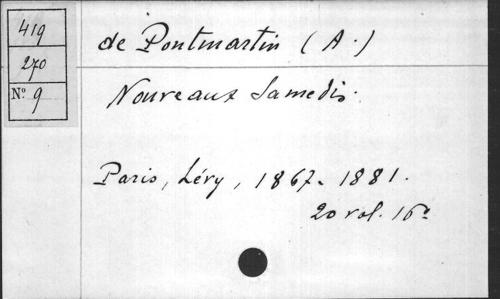 419
270
Nº 9
de Pontmartin (A.)
Nouveaux Samedis.
Paris, Lévy, 1867-1881.
20 vol. 16º